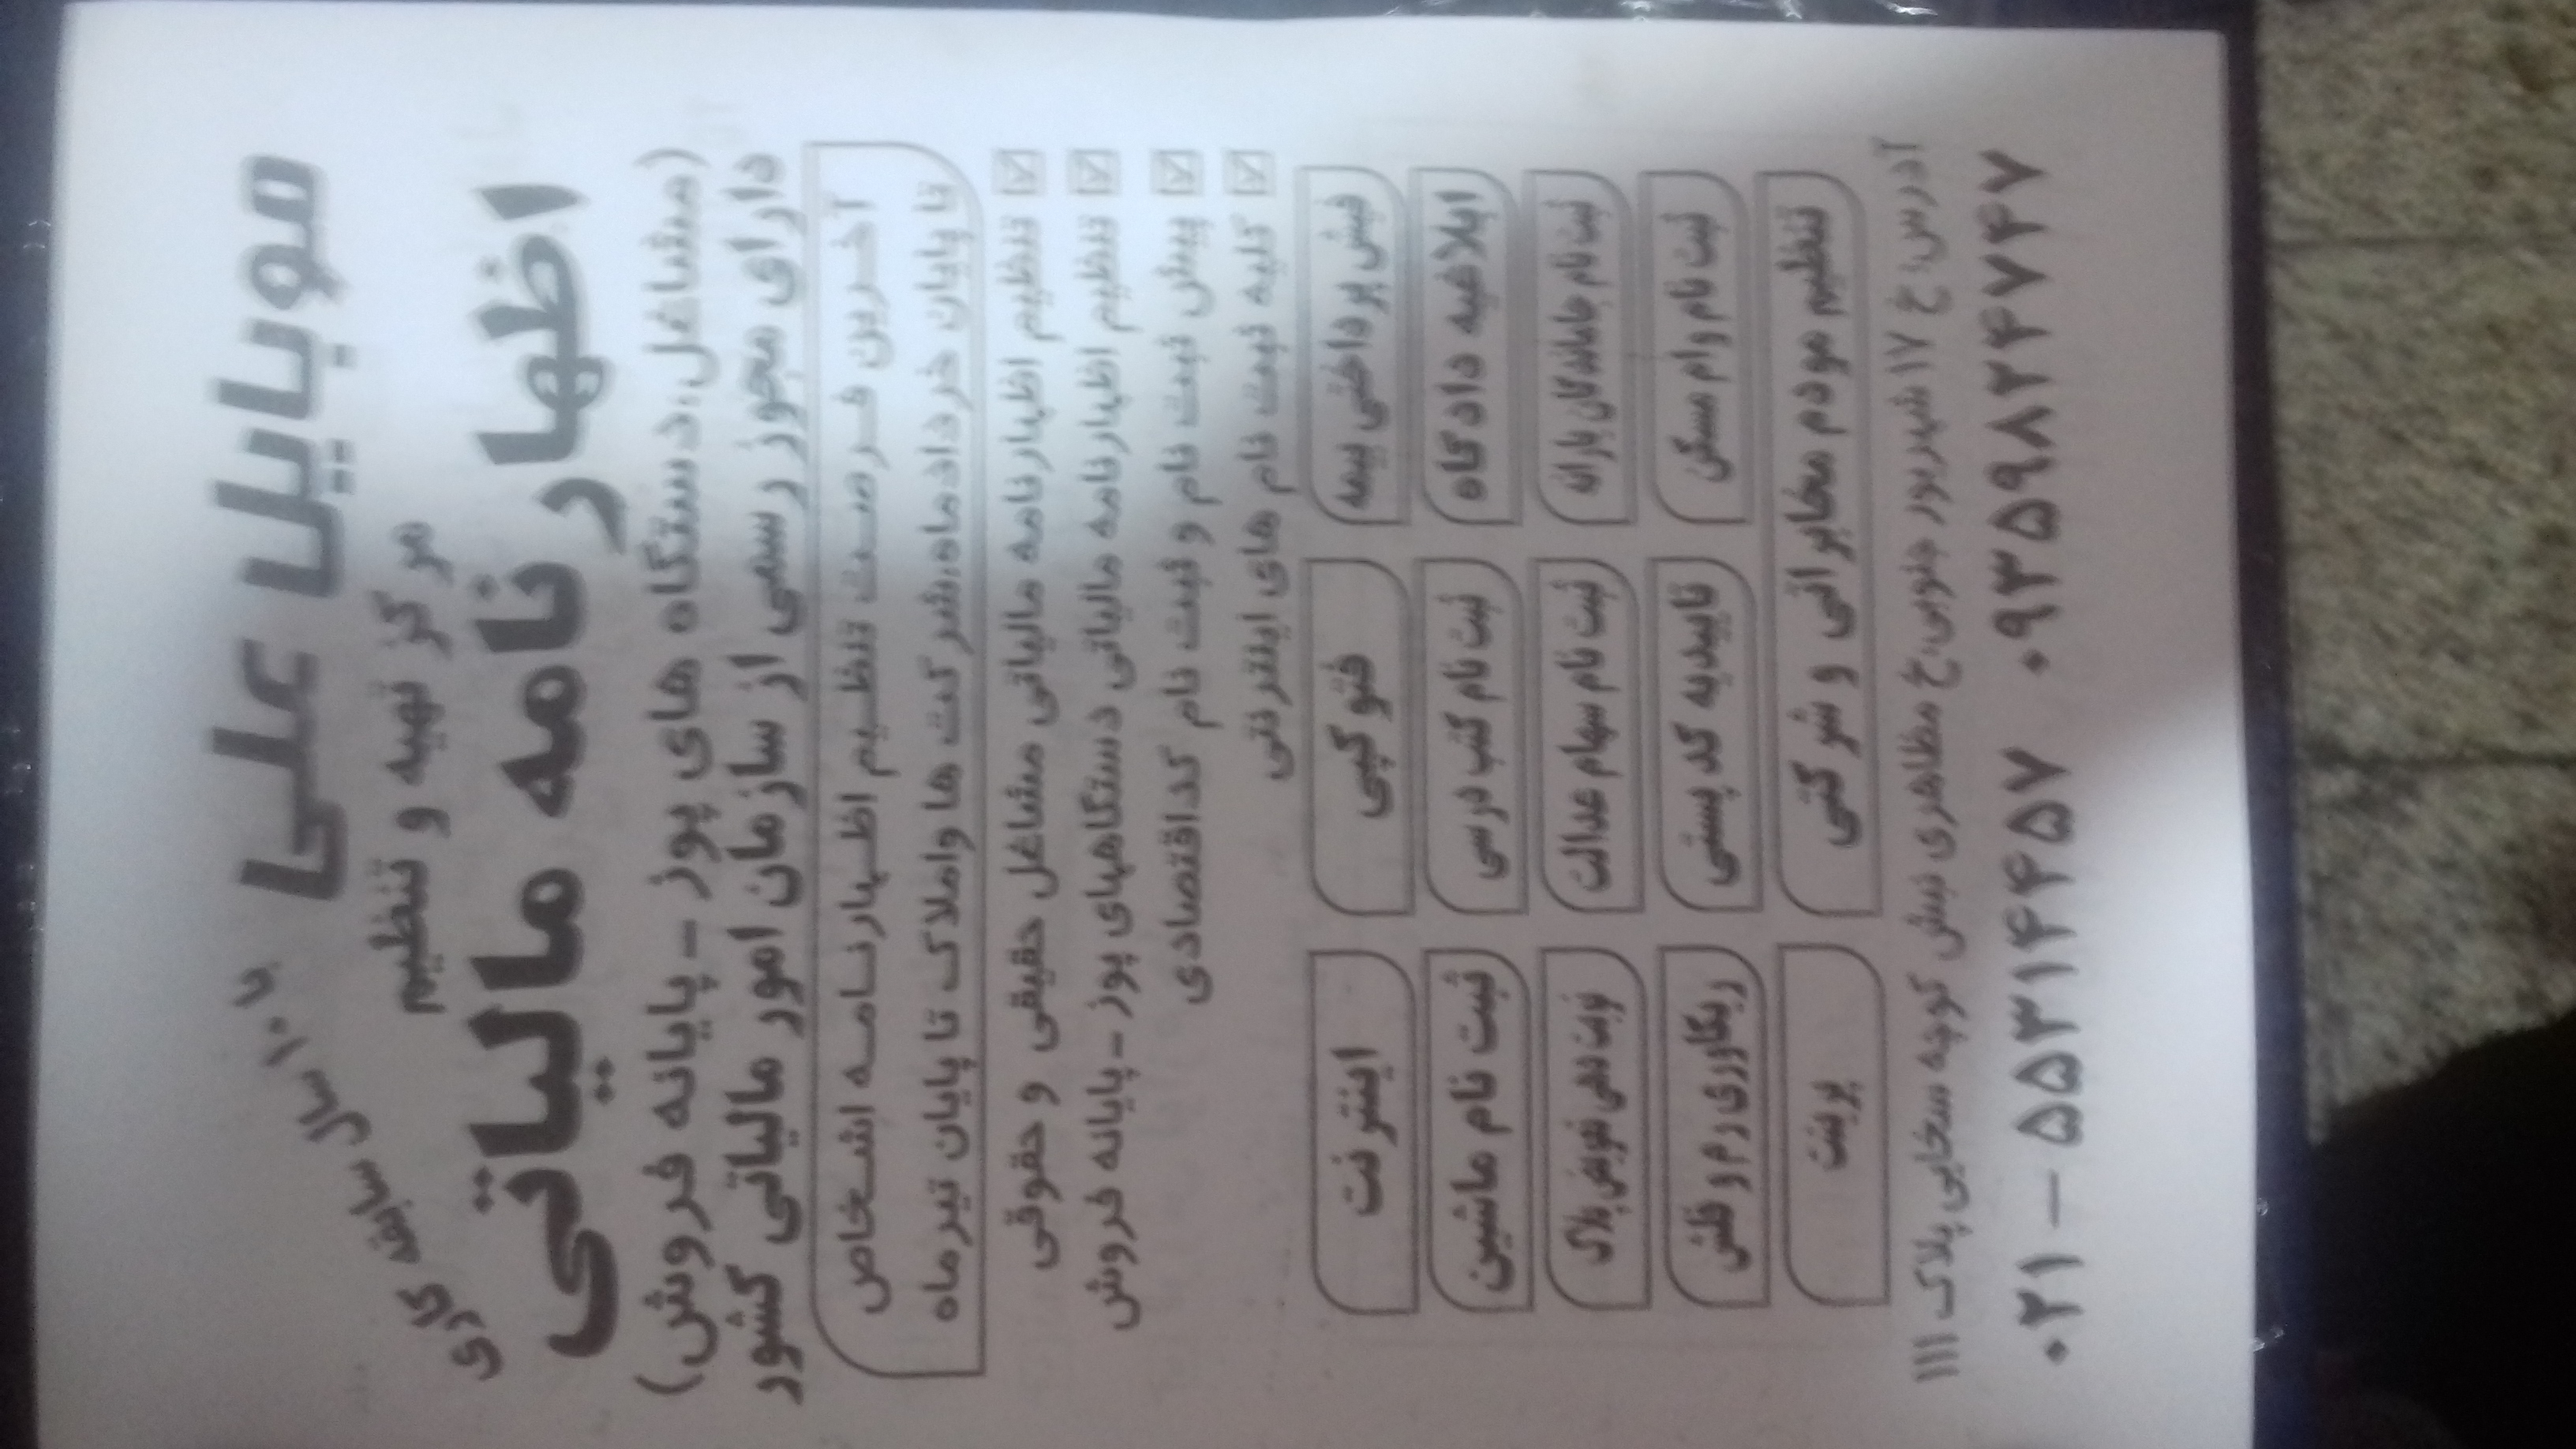 موبایل علی
با ۱۰ سال سابقه کاری
مرکز تهیه و تنظیم
اظهارنامه مالیاتی
(مشاغل،دستگاه های پوز - پایانه فروش)
دارای مجوز رسمی از سازمان امور مالیاتی کشور
آخرین فرصت تنظیم اظهارنامه اشخاص
تا پایان خردادماه،شرکت ها واملاک تا پایان تیرماه
☑ تنظیم اظهارنامه مالیاتی مشاغل حقیقی و حقوقی
☑ تنظیم اظهارنامه مالیاتی دستگاههای پوز - پایانه فروش
☑ پیش ثبت نام و ثبت نام کداقتصادی
☑ کلیه ثبت نام های اینترنتی
فیش پرداختی بیمه فتوکپی اینترنت
ابلاغیه دادگاه ثبت نام کتب درسی ثبت نام ماشین
ثبت نام جاماندگان یارانه ثبت نام سهام عدالت نوبت دهی تعویض پلاک
ثبت نام وام مسکن تاییدیه کد پستی ریکاوری رم و فلش
تنظیم مودم مخابراتی و شرکتی پرینت
آدرس: خ ۱۷ شهریور جنوبی،خ مظاهری نبش کوچه سخایی پلاک ۱۱۱
۰۲۱ – ۵۵۳۱۴۴۵۷ ۰۹۳۵۹۸۲۴۷۴۷